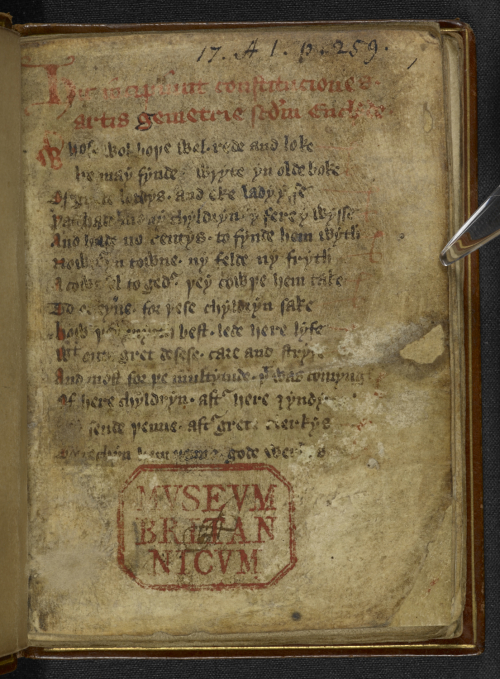 17. A 1. p. 259.
Hic incipiunt constituciones
artis gemetrie sedm Euclyde
Whose wol bope wel rede and loke
he may fynde wryte yn olde boke
Of grete lordys and eke ladyysse
þat hade mony chyldryn y fere y wysse
And hade no rentys to fynde hem wyth
Nowþer yn towne ny felde ny fryth
A cowsel togedr þey cowþe hem take
To ordeyne for þese chyldryn sake
How þey best lede here lyfe
Wtoute gret desese care and stryf
And most for þe multytude þt was comyng
Of here chyldryn aftr here ȝyndyng
sende þenne aftr grete clerkys
To techyn hem þenne gode werkys
MVSEVM
BRITAN
NICVM